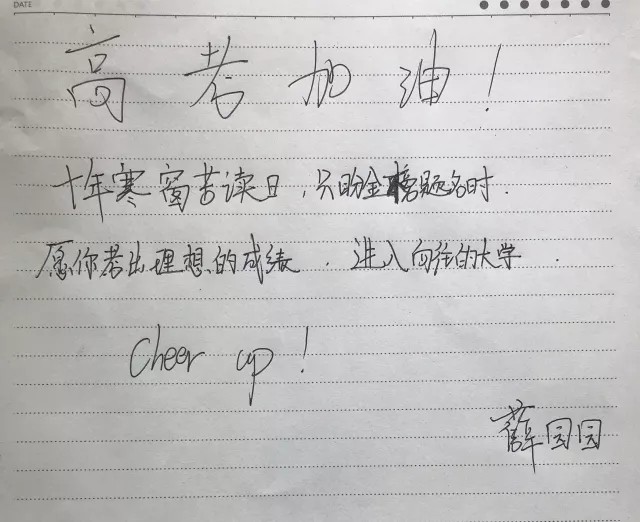 DATE
高考加油!
十年寒窗苦读日,只盼金榜题名时.
愿你考出理想的成绩.进入向往的大学.
Cheer up!
薛园园